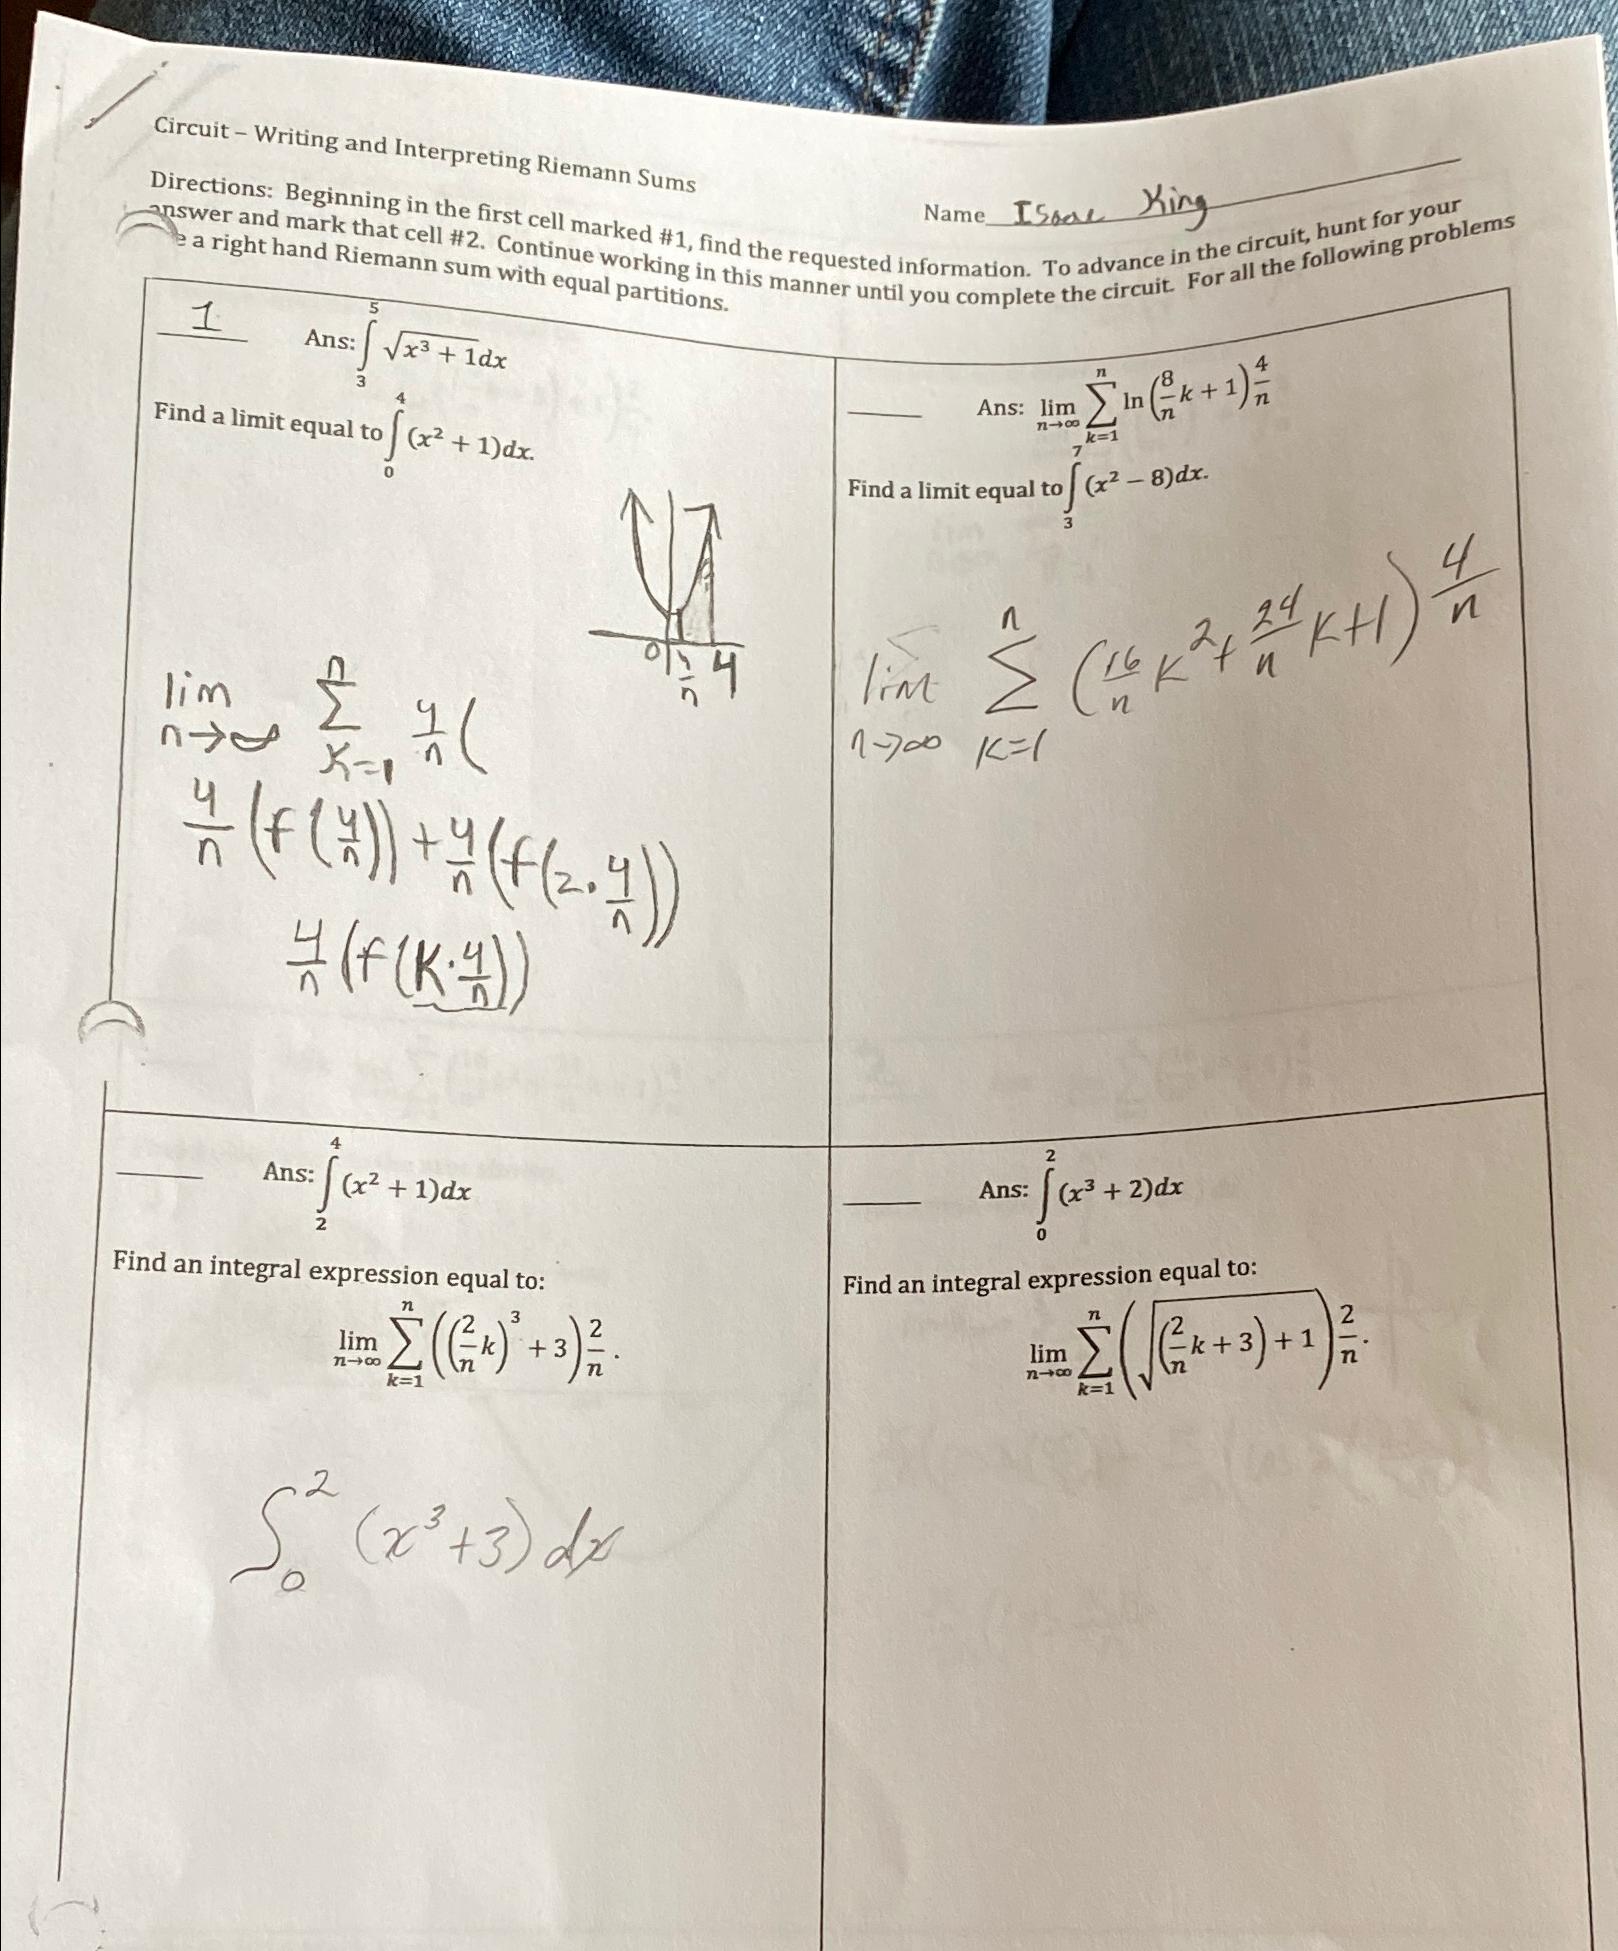 Circuit – Writing and Interpreting Riemann Sums
Name Isaac King
Directions: Beginning in the first cell marked #1, find the requested information. To advance in the circuit, hunt for your
answer and mark that cell #2. Continue working in this manner until you complete the circuit. For all the following problems
e a right hand Riemann sum with equal partitions.
1 Ans: ∫₃⁵ √(x³ + 1) dx
Find a limit equal to ∫₀⁴ (x² + 1)dx.
0 4/n 4
lim n→∞ Σ k=1 n 4/n (
4/n (f(4/n)) + 4/n (f(2·4/n))
4/n (f(K·4/n))
____ Ans: lim n→∞ Σ k=1 n ln(8/n k + 1) 4/n
Find a limit equal to ∫₃⁷ (x² − 8)dx.
lim n→∞ Σ k=1 n (16/n k² + 24/n k + 1) 4/n
____ Ans: ∫₂⁴ (x² + 1)dx
Find an integral expression equal to:
lim n→∞ Σ k=1 n ((2/n k)³ + 3) 2/n .
∫₀² (x³ + 3) dx
____ Ans: ∫₀² (x³ + 2)dx
Find an integral expression equal to:
lim n→∞ Σ k=1 n (√((2/n k + 3) + 1)) 2/n .